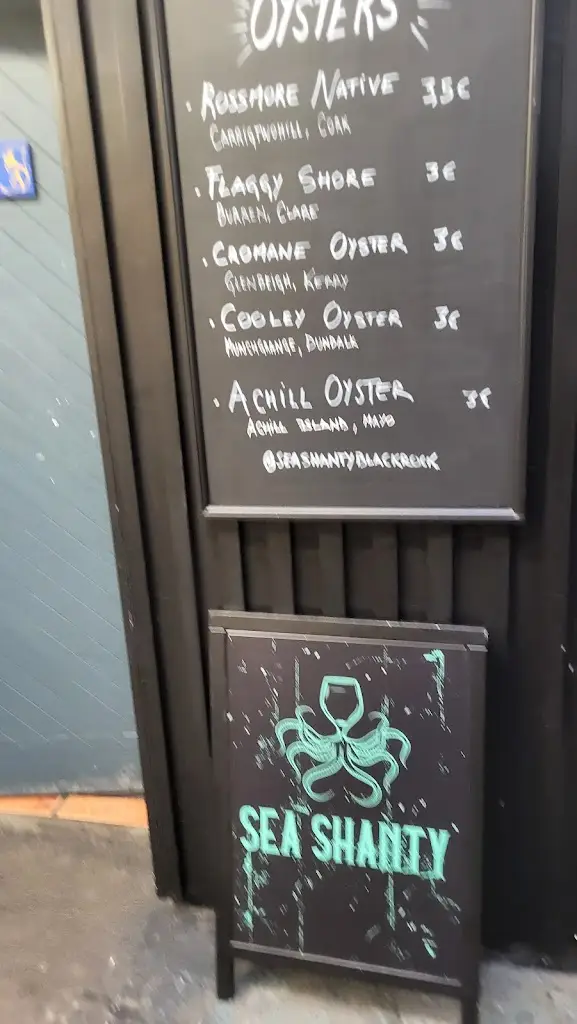 OYSTERS
· ROSSMORE NATIVE 3.5€
CARRIGTWOHILL, CORK
· FLAGGY SHORE 3€
BURREN, CLARE
· CROMANE OYSTER 3€
GLENBEIGH, KERRY
· COOLEY OYSTER 3€
DUNDALK
· ACHILL OYSTER 3€
ACHILL ISLAND, MAYO
@SEASHANTYBLACKROCK
SEA SHANTY